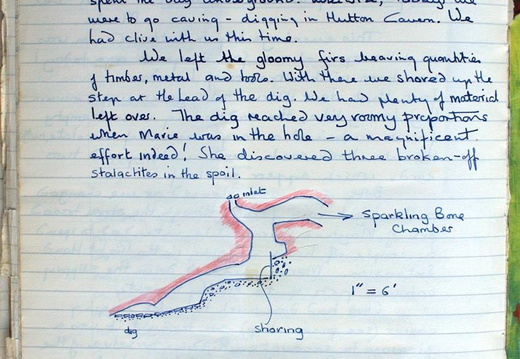 spent the day underground. Likewise, Tuesday we
were to go caving - digging in Hutton Cavern. We
had Clive with us this time.
We left the gloomy firs heaving quantities
of timber, metal and tools. With these we shored up the
step at the head of the dig. We had plenty of material
left over. The dig reached very roomy proportions
when Marie was in the hole - a magnificent
effort indeed! She discovered three broken-off
stalactites in the spoil.
inlet
Sparkling Bone
Chamber
1" = 6'
dig
shoring